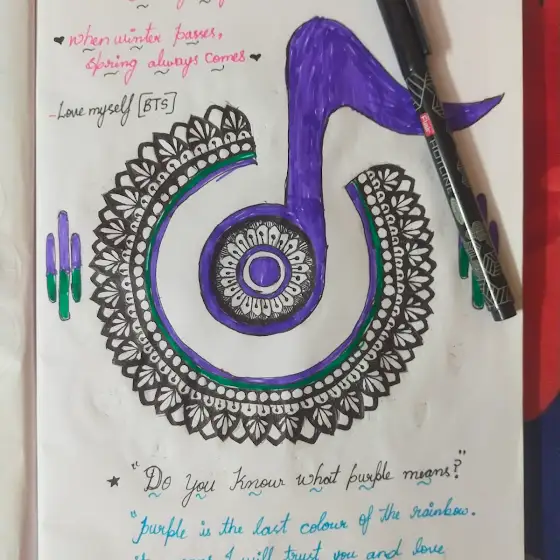 when winter passes,
spring always comes
-Love myself [BTS]
HOTLINE
"Do You Know what purple means?"
"purple is the last colour of the rainbow.
I will trust you and love